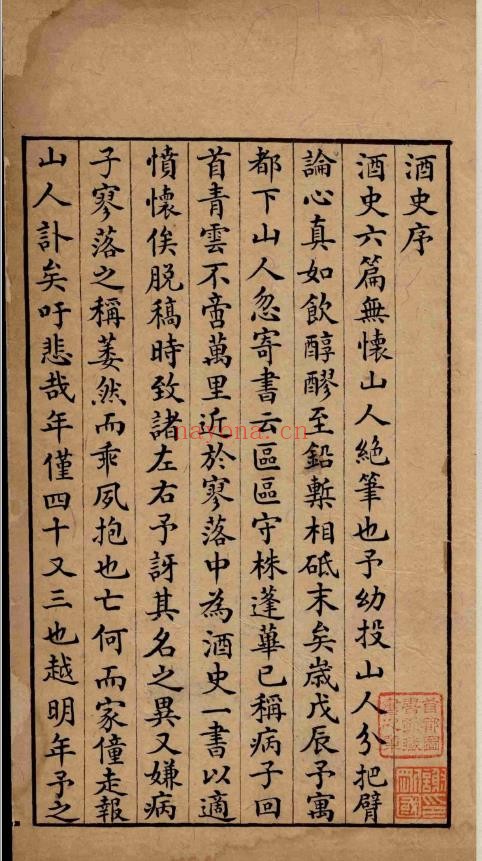 酒史序
酒史六篇無懷山人絕筆也予幼投山人分把臂
論心真如飲醇醪至鉛槧相砥末矣歲戊辰予寓
都下山人忽寄書云區區守株蓬蓽已稱病子回
首青雲不啻萬里近於寥落中為酒史一書以適
憤懷俟脫稿時致諸左右予訝其名之異又嫌病
子寥落之稱萎然而乖夙抱也亡何而家僮走報
山人訃矣吁悲哉年僅四十又三也越明年予之
nayona.cn